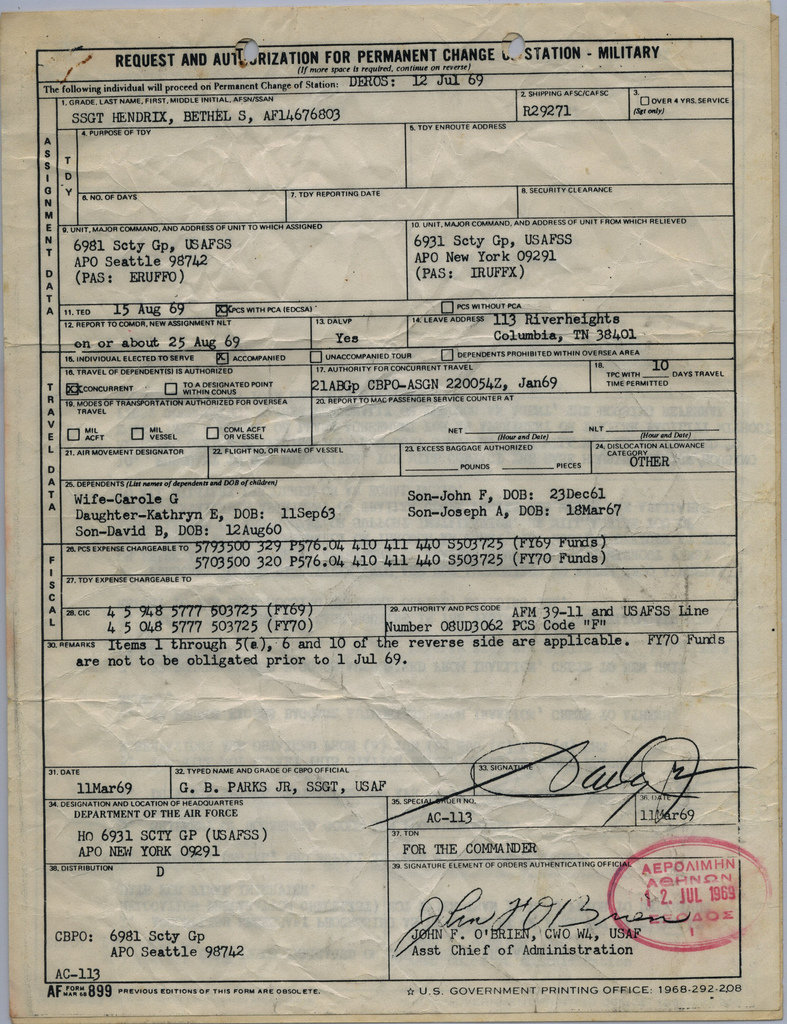 REQUEST AND AUTHORIZATION FOR PERMANENT CHANGE OF STATION - MILITARY
(If more space is required, continue on reverse)
The following individual will proceed on Permanent Change of Station: DEROS: 12 Jul 69
ASSIGNMENT DATA
1. GRADE, LAST NAME, FIRST, MIDDLE INITIAL, AFSN/SSAN
SSGT HENDRIX, BETHEL S, AF14676803
2. SHIPPING AFSC/CAFSC
R29271
3. OVER 4 YRS. SERVICE
(Sgt only)
TDY
4. PURPOSE OF TDY
5. TDY ENROUTE ADDRESS
6. NO. OF DAYS
7. TDY REPORTING DATE
8. SECURITY CLEARANCE
9. UNIT, MAJOR COMMAND, AND ADDRESS OF UNIT TO WHICH ASSIGNED
6981 Scty Gp, USAFSS
APO Seattle 98742
(PAS: ERUFFO)
10. UNIT, MAJOR COMMAND, AND ADDRESS OF UNIT FROM WHICH RELIEVED
6931 Scty Gp, USAFSS
APO New York 09291
(PAS: IRUFFX)
11. TED 15 Aug 69 X PCS WITH PCA (EDCSA) PCS WITHOUT PCA
12. REPORT TO COMDR, NEW ASSIGNMENT NLT
on or about 25 Aug 69
13. DALVP
Yes
14. LEAVE ADDRESS 113 Riverheights
Columbia, TN 38401
TRAVEL DATA
15. INDIVIDUAL ELECTED TO SERVE X ACCOMPANIED UNACCOMPANIED TOUR DEPENDENTS PROHIBITED WITHIN OVERSEA AREA
16. TRAVEL OF DEPENDENT(S) IS AUTHORIZED
X CONCURRENT TO A DESIGNATED POINT WITHIN CONUS
17. AUTHORITY FOR CONCURRENT TRAVEL
21ABGp CBPO-ASGN 220054Z, Jan69
18. TPC WITH 10 DAYS TRAVEL
TIME PERMITTED
19. MODES OF TRANSPORTATION AUTHORIZED FOR OVERSEA TRAVEL
MIL ACFT MIL VESSEL COML ACFT OR VESSEL
20. REPORT TO MAC PASSENGER SERVICE COUNTER AT
NET (Hour and Date) NLT (Hour and Date)
21. AIR MOVEMENT DESIGNATOR
22. FLIGHT NO. OR NAME OF VESSEL
23. EXCESS BAGGAGE AUTHORIZED
POUNDS PIECES
24. DISLOCATION ALLOWANCE CATEGORY
OTHER
25. DEPENDENTS (List names of dependents and DOB of children)
Wife-Carole G
Daughter-Kathryn E, DOB: 11Sep63
Son-David B, DOB: 12Aug60
Son-John F, DOB: 23Dec61
Son-Joseph A, DOB: 18Mar67
FISCAL
26. PCS EXPENSE CHARGEABLE TO 5793500 329 P576.04 410 411 440 S503725 (FY69 Funds)
5703500 320 P576.04 410 411 440 S503725 (FY70 Funds)
27. TDY EXPENSE CHARGEABLE TO
28. CIC 4 5 948 5777 503725 (FY69)
4 5 048 5777 503725 (FY70)
29. AUTHORITY AND PCS CODE AFM 39-11 and USAFSS Line
Number 08UD3062 PCS Code "F"
30. REMARKS Items 1 through 5(a), 6 and 10 of the reverse side are applicable. FY70 Funds
are not to be obligated prior to 1 Jul 69.
31. DATE
11Mar69
32. TYPED NAME AND GRADE OF CBPO OFFICIAL
G. B. PARKS JR, SSGT, USAF
33. SIGNATURE
34. DESIGNATION AND LOCATION OF HEADQUARTERS
DEPARTMENT OF THE AIR FORCE
HQ 6931 SCTY GP (USAFSS)
APO NEW YORK 09291
35. SPECIAL ORDER NO.
AC-113
36. DATE
11Mar69
37. TDN
FOR THE COMMANDER
38. DISTRIBUTION
D
CBPO: 6981 Scty Gp
APO Seattle 98742
AC-113
39. SIGNATURE ELEMENT OF ORDERS AUTHENTICATING OFFICIAL
John F O'Brien
JOHN F. O'BRIEN, CWO W4, USAF
Asst Chief of Administration
ΑΕΡΟΛΙΜΗΝ
ΑΘΗΝΩΝ
2. JUL 1969
ΕΞΟΔΟΣ
1
AF FORM MAR 68 899 PREVIOUS EDITIONS OF THIS FORM ARE OBSOLETE.
☆ U.S. GOVERNMENT PRINTING OFFICE: 1968-292-208